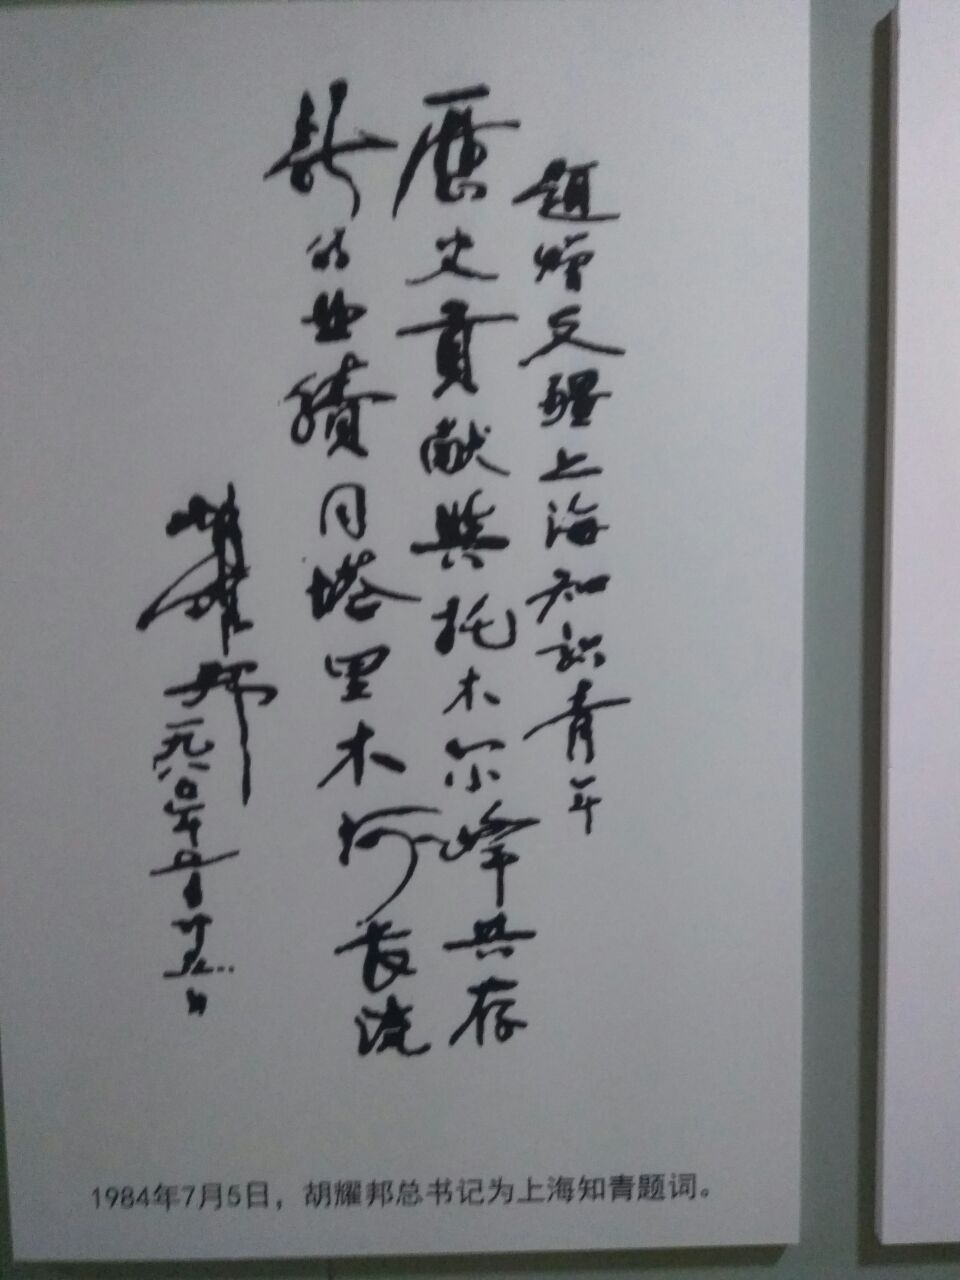 題赠支疆上海知识青年
歷史貢献與托木尔峰共存
新的业績同塔里木河長流
胡耀邦
一九八〇年
1984年7月5日，胡耀邦总书记为上海知青题词。